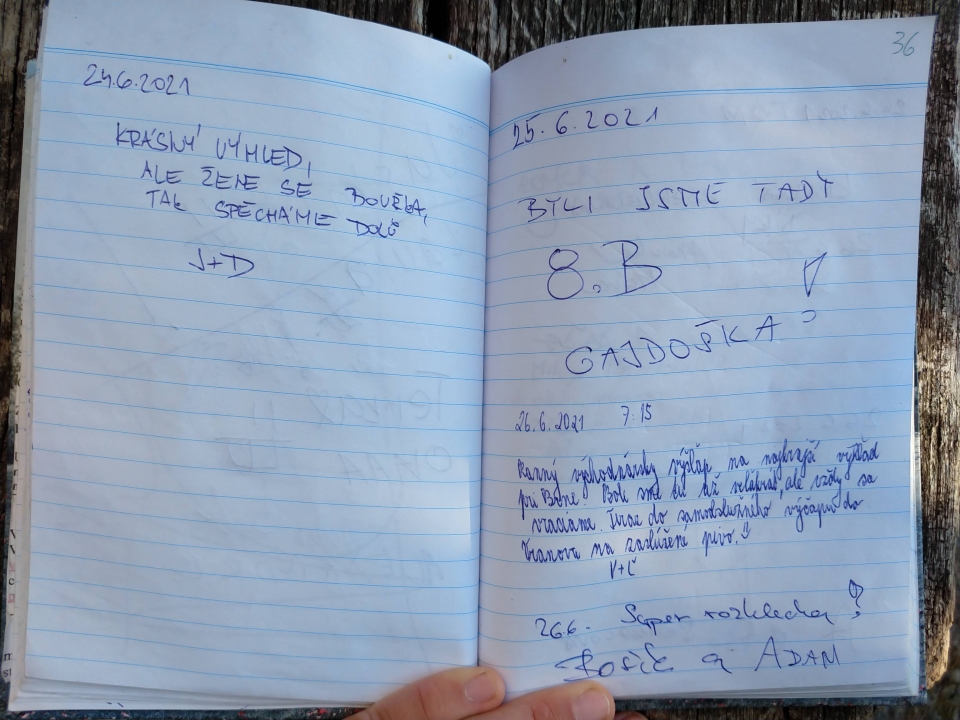 24.6.2021
KRÁSNÝ VÝHLED,
ALE ŽENE SE BOUŘKA,
TAK SPĚCHÁME DOLŮ
J+D
36
25.6.2021
BYLI JSME TADY
8.B
GAJDOŠKA
26.6.2021 7:15
Ranný východniarsky výšlap na najkrajší výhľad
pri Brne. Boli sme tu už veľakrát, ale vždy sa
vraciame. Teraz do samoobslužného výčapu do
Vranova na zaslúžené pivo.
V+Ľ
26.6. Super rozhledna
a ADAM